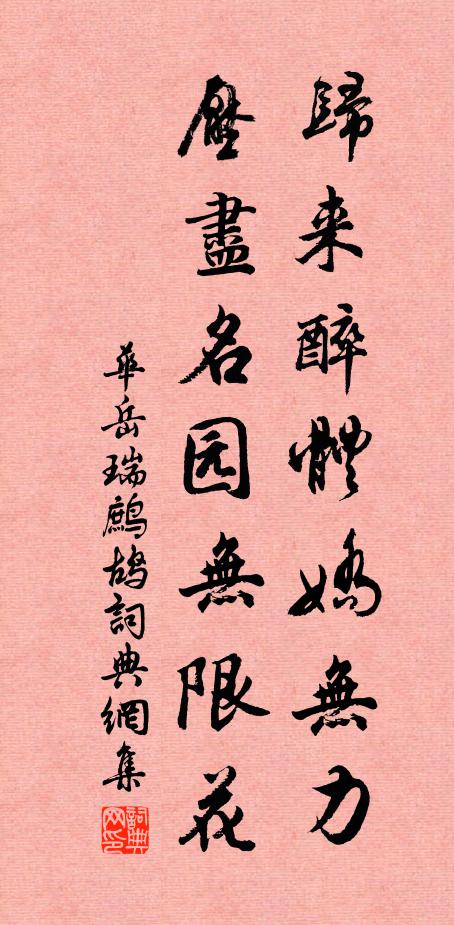 歸来醉體嬌無力
壓盡名园無限花
華岳瑞鷓鴣詞典網集
詞典网印